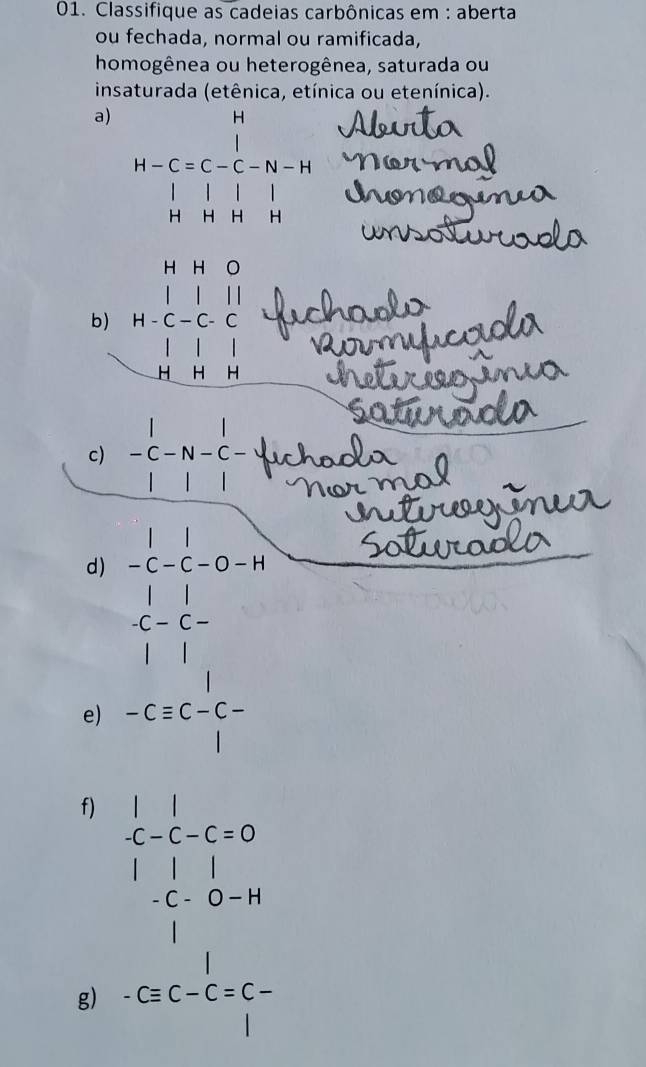 01. Classifique as cadeias carbônicas em : aberta
ou fechada, normal ou ramificada,
homogênea ou heterogênea, saturada ou
insaturada (etênica, etínica ou etenínica).
a) H
|
H – C = C – C – N – H
| | | |
H H H H
Aberta
normal
homogênea
insaturada
H H O
| | ||
b) H - C – C - C
| | |
H H H
fechada
Ramificada
heterogênea
saturada
| |
c) – C – N – C –
| | |
fechada
normal
heterogênea
saturada
| |
d) – C – C – O – H
| |
-C – C –
| |
|
e) – C ≡ C – C –
|
f) | |
-C – C – C = O
| | |
- C - O – H
|
|
g) - C ≡ C – C = C –
|